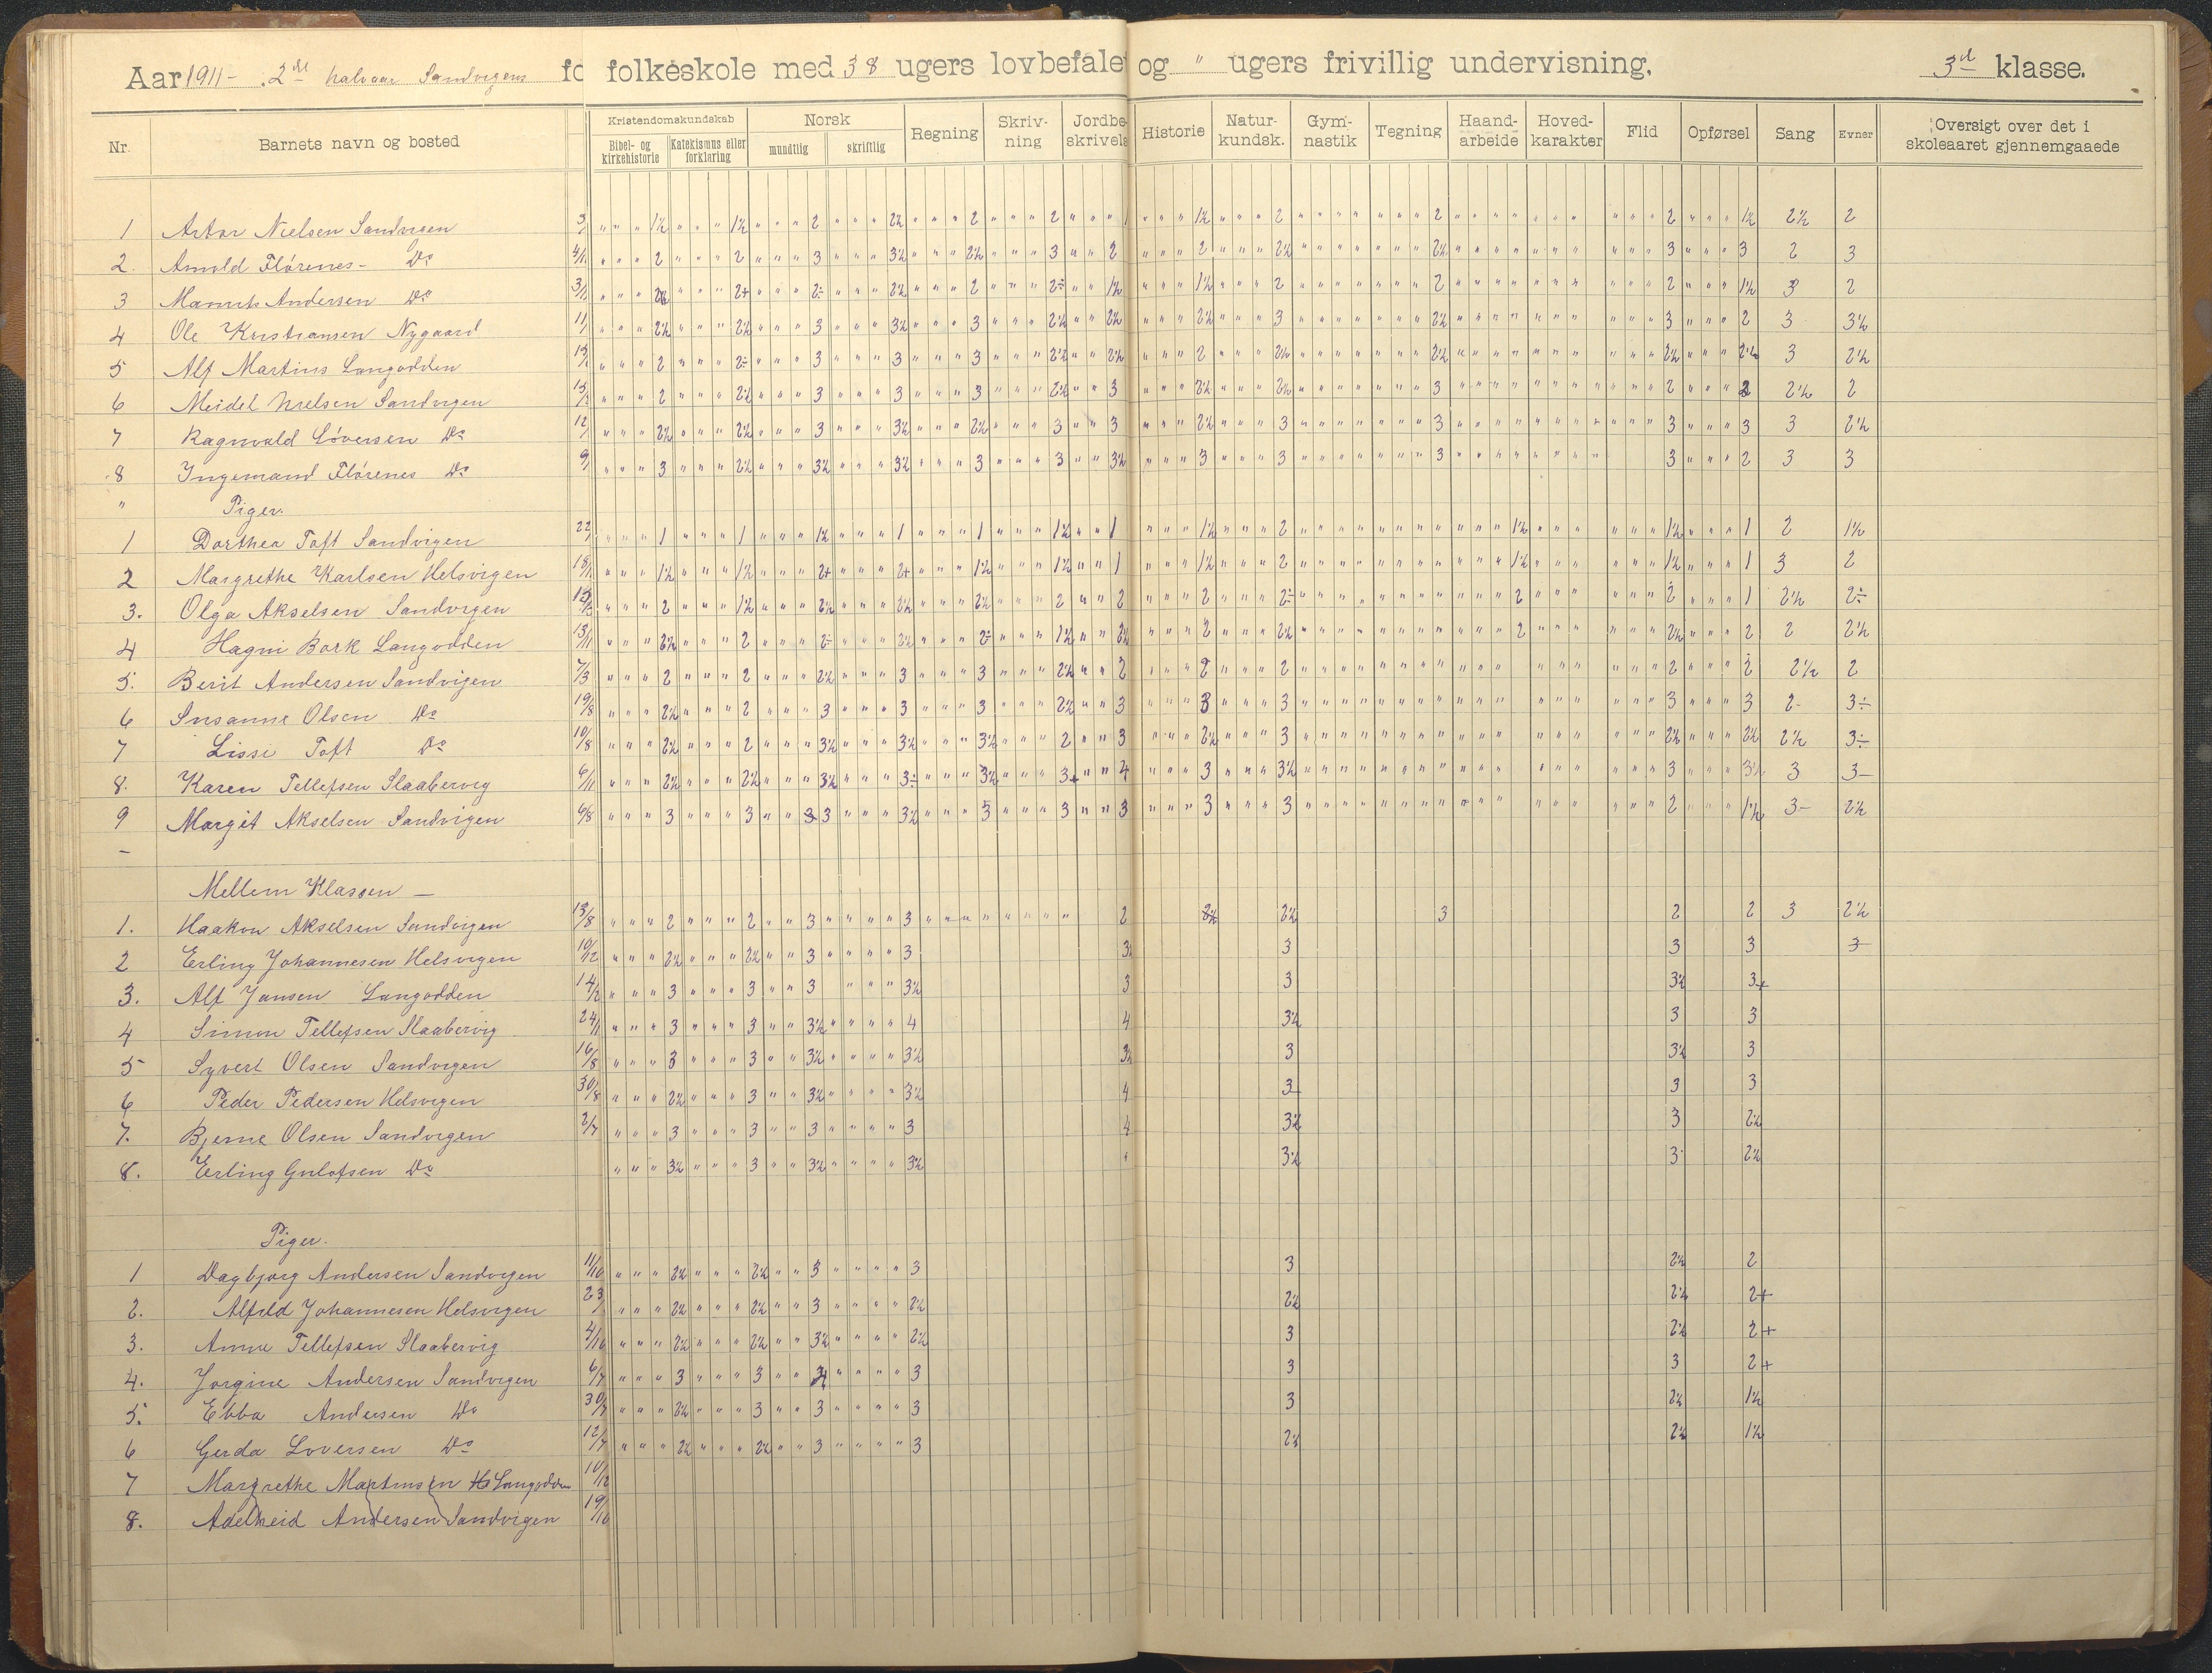 Aar 1911- 2det halvaar Sandvigens fo folkeskole med 38 ugers lovbefalet og " ugers frivillig undervisning. 3d klasse.
Nr. Barnets navn og bosted Kristendomskundskab Norsk Regning Skriv-ning Jordbe-skrivels Historie Natur-kundsk. Gym-nastik Tegning Haand-arbeide Hoved-karakter Flid Opførsel Sang Evner Oversigt over det i skoleaaret gjennemgaaede
Bibel- og kirkehistorie Katekismus eller forklaring mundtlig skriftlig
1 Artor Nielsen Sandvigen 1½ 1½ 2 2½ 2 2 1½ 2 2 2 1½ 2½ 2
2. Arnold Flørenes- Do 2 2 3 3½ 2½ 3 2 2 2½ 2½ 3 3 2 3
3 Andersen Do 2½ 2+ 2÷ 2½ 2 2÷ 1½ 1½ 2 2 2 1½ 3 2
4 Ole Kristiansen Nygaard 2½ 2½ 3 3½ 3 2½ 2½ 2½ 3 2½ 3 2 3 3½
5 Alf Martins Langodden 2 2÷ 3 3 3 2½ 2½ 2 2½ 2½ 2½ 2½ 3 2½
6 Meidel Nielsen Sandvigen 2 2½ 3 3 3 2½ 3 2½ 2½ 3 2 2 2½ 2
7 Ragnvald Løversen Do 2½ 2½ 3 3½ 2½ 3 3 2½ 3 3 3 3 3 2½
8 Ingemand Flørenes Do 3 2½ 3½ 3½ 3 3 3½ 3 3 3 3 2 3 3
" Piger.
1 Dorthea Toft Sandvigen 1 1 1½ 1 1 1½ 1 1½ 2 1½ 1½ 1 2 1½
2 Margrethe Karlsen Helsvigen 1½ 1½ 2+ 2+ 1½ 1½ 1 1½ 2 1½ 1½ 1 3 2
3. Olga Akselsen Sandvigen 2 1½ 2½ 2½ 2½ 2 2 2 2÷ 2 2 1 2½ 2÷
4 Hagni Bork Langodden 2½ 2 2÷ 2½ 2÷ 1½ 2½ 2 2½ 2 2½ 2 2 2½
5. Berit Andersen Sandvigen 7/3 2 2 2½ 3 3 2½ 2 2 2 2 2 2½ 2
6 Susanne Olsen Do 19/8 2½ 2 3 3 3 2½ 3 3 3 3 3 2- 3÷
7 Lissi Toft Do 10/8 2½ 2 3½ 3½ 3½ 2 3 2½ 3 2½ 2½ 2½ 3÷
8. Karen Tellefsen Slaabervig 6/11 2½ 2½ 3½ 3÷ 3½ 3+ 4 3 3½ 3 3½ 3 3-
9 Margit Akselsen Sandvigen 6/8 3 3 3 3½ 3 3 3 3 3 2 1½ 3- 2½
-
Mellem Klassen -
1. Haakon Akselsen Sandvigen 13/8 2 2 3 3 2 2½ 2½ 3 2 2 3 2½
2 Erling Johannesen Helsvigen 10/12 2½ 2½ 3 3 3½ 3 3 3 3
3. Alf Jansen Langodden 14/2 3 3 3 3½ 3 3 3½ 3+
4 Simon Tellefsen Slaabervig 24/11 3 3 3½ 4 4 3½ 3 3
5 Syvert Olsen Sandvigen 16/8 3 3 3½ 3½ 3½ 3 3½ 3
6 Peder Pedersen Helsvigen 30/8 2½ 3 3½ 3½ 4 3 3 3
7. Bjerne Olsen Sandvigen 2/7 3 3 3 3 4 3½ 3 2½
8. Erling Gulofsen Do 3½ 3 3½ 3½ 3½ 3 2½
Piger.
1 Dagbjørg Andersen Sandvigen 11/10 2½ 2½ 3 3 3 2½ 2
2. Alfild Johannesen Helsvigen 23 2½ 2½ 3 2½ 2½ 2½ 2+
3. Anne Tellefsen Slaabervig 4/10 2½ 2½ 3½ 2½ 3 2½ 2+
4. Jorgine Andersen Sandvigen 6/7 3 3 3 3 3 2+
5. Ebba Andersen Do 30/7 2½ 3 3 3 3 2½ 1½
6 Gerda Loversen Do 12/7 2½ 2½ 3 3 2½ 2½ 1½
7 Margrethe Martinsen Langodden 10/12
8. Adelheid Andersen Sandvigen 19/10